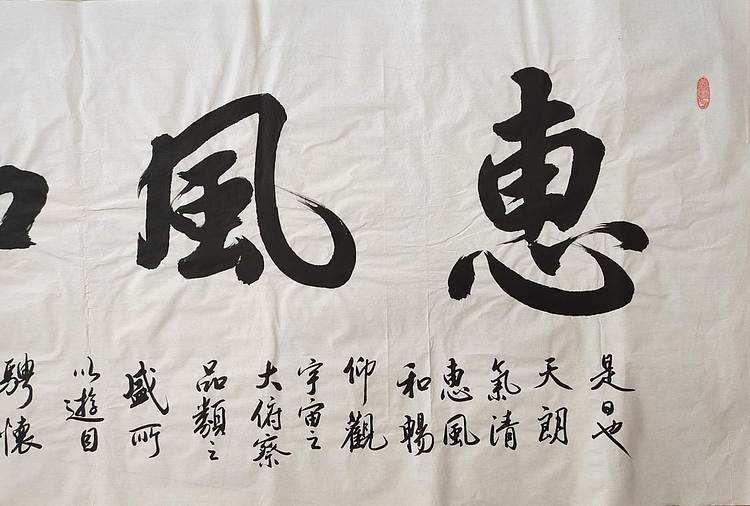 惠風
是日也
天朗
氣清
惠風
和暢
仰觀
宇宙之
大俯察
品類之
盛所
以遊目
騁懷